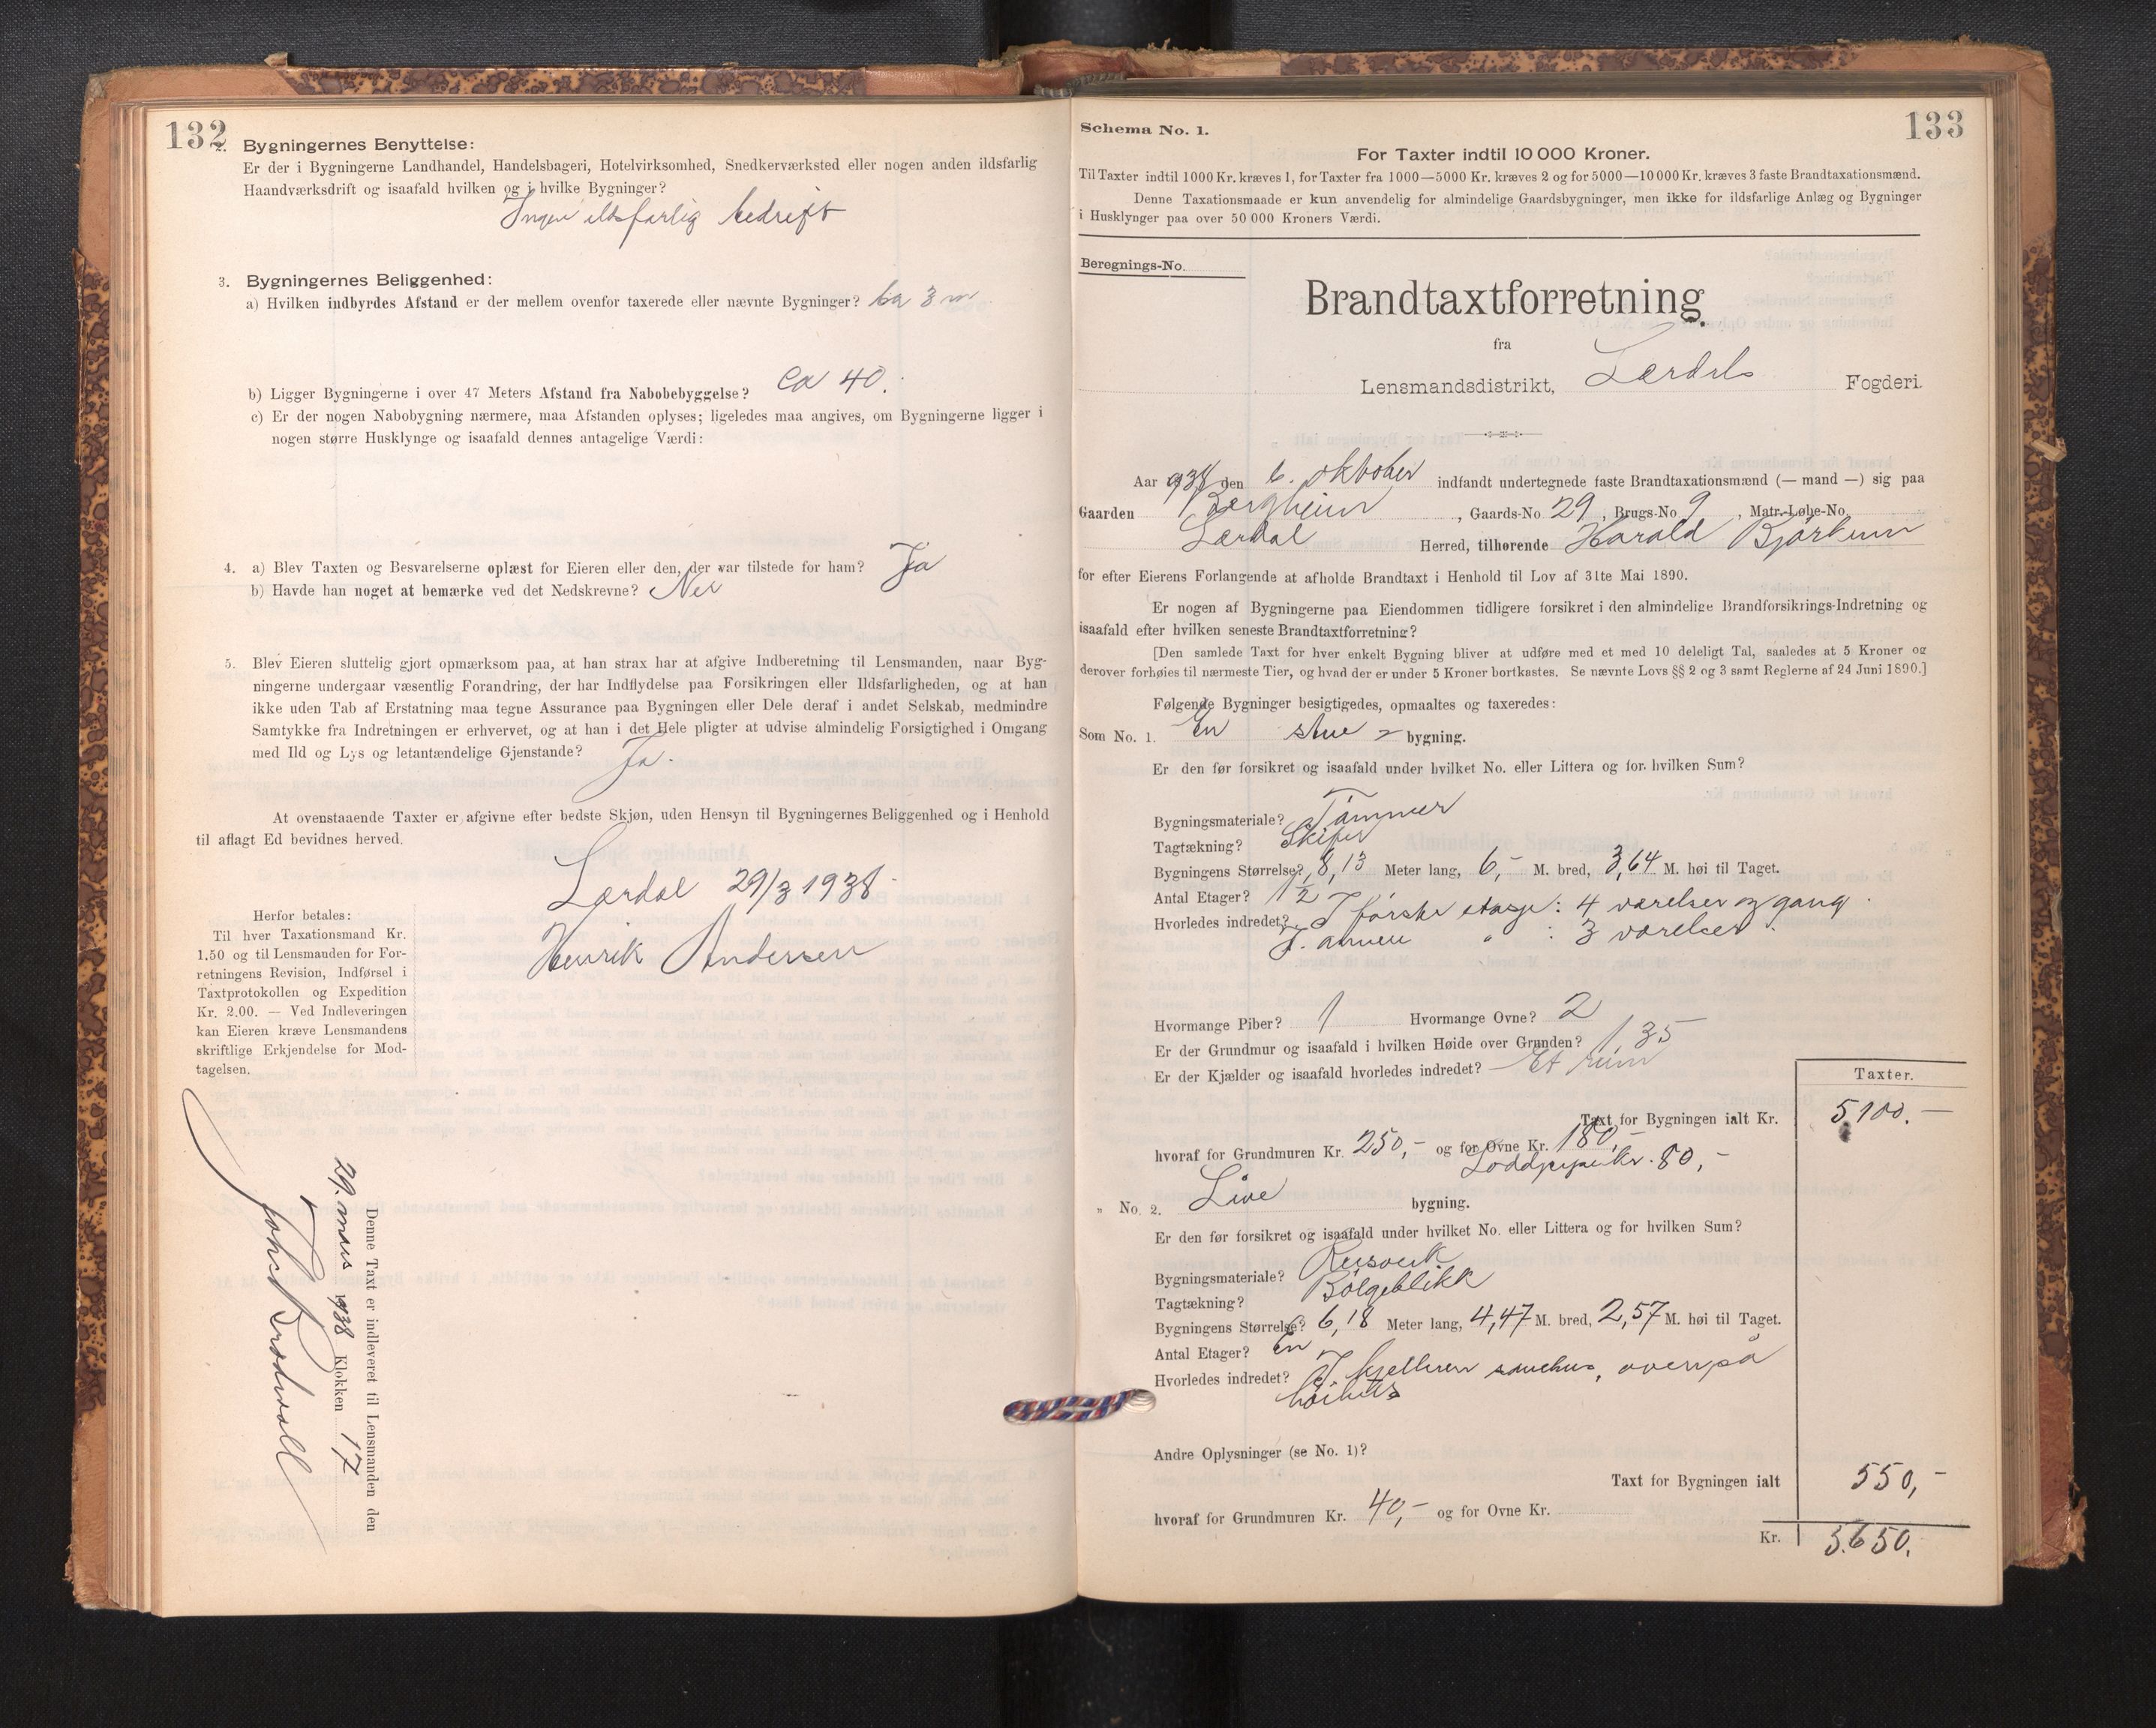 132
2. Bygningernes Benyttelse:
Er der i Bygningerne Landhandel, Handelsbageri, Hotelvirksomhed, Snedkerværksted eller nogen anden ildsfarlig
Haandværksdrift og isaafald hvilken og i hvilke Bygninger?
Ingen ildsfarlig bedrift
3. Bygningernes Beliggenhed:
a) Hvilken indbyrdes Afstand er der mellem ovenfor taxerede eller nævnte Bygninger? ca 3 m
b) Ligger Bygningerne i over 47 Meters Afstand fra Nabobebyggelse? ca 40.
c) Er der nogen Nabobygning nærmere, maa Afstanden oplyses; ligeledes maa angives, om Bygningerne ligger i
nogen større Husklynge og isaafald dennes antagelige Værdi:
4. a) Blev Taxten og Besvarelserne oplæst for Eieren eller den, der var tilstede for ham? Ja
b) Havde han noget at bemærke ved det Nedskrevne? Nei
5. Blev Eieren sluttelig gjort opmærksom paa, at han strax har at afgive Indberetning til Lensmanden, naar Byg-
ningerne undergaar væsentlig Forandring, der har Indflydelse paa Forsikringen eller Ildsfarligheden, og at han
ikke uden Tab af Erstatning maa tegne Assurance paa Bygningen eller Dele deraf i andet Selskab, medmindre
Samtykke fra Indretningen er erhvervet, og at han i det Hele pligter at udvise almindelig Forsigtighed i Omgang
med Ild og Lys og letantændelige Gjenstande? Ja.
At ovenstaaende Taxter er afgivne efter bedste Skjøn, uden Hensyn til Bygningernes Beliggenhed og i Henhold
til aflagt Ed bevidnes herved.
Lærdal 29/3 1938
Henrik Andersen
Herfor betales:
Til hver Taxationsmand Kr.
1.50 og til Lensmanden for For-
retningens Revision, Indførsel i
Taxtprotokollen og Expedition
Kr. 2.00. — Ved Indleveringen
kan Eieren kræve Lensmandens
skriftlige Erkjendelse for Mod-
tagelsen.
Denne Taxt er indleveret til Lensmanden den
29. mars 1938 Klokken 17
133
Schema No. 1.
For Taxter indtil 10 000 Kroner.
Til Taxter indtil 1000 Kr. kræves 1, for Taxter fra 1000—5000 Kr. kræves 2 og for 5000—10 000 Kr. kræves 3 faste Brandtaxationsmænd.
Denne Taxationsmaade er kun anvendelig for almindelige Gaardsbygninger, men ikke for ildsfarlige Anlæg og Bygninger
i Husklynger paa over 50 000 Kroners Værdi.
Beregnings-No.
Brandtaxtforretning
fra
Lensmandsdistrikt, Lærdals Fogderi.
Aar 1937 den 6. oktober indfandt undertegnede faste Brandtaxationsmænd (— mand —) sig paa
Gaarden Bergheim, Gaards-No. 29, Brugs-No. 9, Matr.-Løbe-No.
Lærdal Herred, tilhørende Harald Bjørkum
for efter Eierens Forlangende at afholde Brandtaxt i Henhold til Lov af 31te Mai 1890.
Er nogen af Bygningerne paa Eiendommen tidligere forsikret i den almindelige Brandforsikrings-Indretning og
isaafald efter hvilken seneste Brandtaxtforretning?
[Den samlede Taxt for hver enkelt Bygning bliver at udføre med et med 10 deleligt Tal, saaledes at 5 Kroner og
derover forhøies til nærmeste Tier, og hvad der er under 5 Kroner bortkastes. Se nævnte Lovs §§ 2 og 3 samt Reglerne af 24 Juni 1890.]
Følgende Bygninger besigtigedes, opmaaltes og taxeredes:
Som No. 1. En stue bygning.
Er den før forsikret og isaafald under hvilket No. eller Littera og for hvilken Sum?
Bygningsmateriale? Tømmer
Tagtækning? Skifer
Bygningens Størrelse? 8,13 Meter lang, 6,- M. bred, 3,64 M. høi til Taget.
Antal Etager? 1 1/2
Hvorledes indredet? I første etasje: 4 værelser og gang.
I. annen " : 3 værelser.
Hvormange Piber? 1 Hvormange Ovne? 2
Er der Grundmur og isaafald i hvilken Høide over Grunden? 1,35
Er der Kjælder og isaafald hvorledes indredet? Et rum
Taxter.
Taxt for Bygningen ialt Kr. 5.100.—
hvoraf for Grundmuren Kr. 250,- og for Ovne Kr. 180,-
Loddpipe kr. 80,-
" No. 2. Løe bygning.
Er den før forsikret og isaafald under hvilket No. eller Littera og for hvilken Sum?
Bygningsmateriale? Reisverk
Tagtækning? Bølgeblikk
Bygningens Størrelse? 6,18 Meter lang, 4,47 M. bred, 2,57 M. høi til Taget.
Antal Etager? En
Hvorledes indredet? I kjelleren sauehus, ovenpå
høihus
Andre Oplysninger (se No. 1)?
Taxt for Bygningen ialt 550,-
hvoraf for Grundmuren Kr. 40,- og for Ovne Kr.
Kr. 5.650.